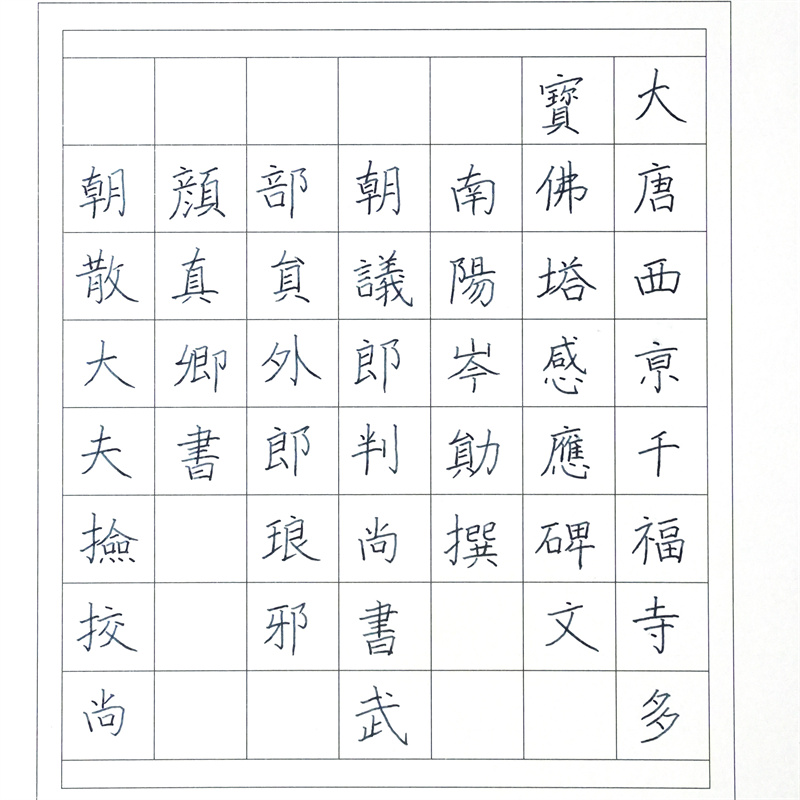 大唐西亰千福寺多
寳佛塔感應碑文
南陽岑勛撰
朝議郎判尚書武
部貟外郎琅邪
顔真卿書
朝散大夫撿挍尚